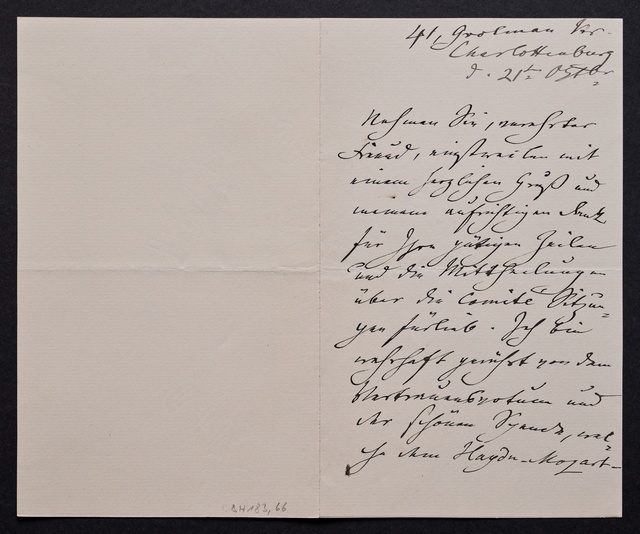 41, Grolman Str.
Charlottenburg
d. 21ten Octbr
Nehmen Sie, verehrter
Freund, einstweilen mit
einem herzlichen Gruß und
meinem aufrichtigen Dank
für Ihre gütigen Zeilen
und die Mittheilungen
über die Comité Sitzun-
gen fürlieb. Ich bin
wahrhaft gerührt von dem
Vertrauensvotum und
der schönen Spende, wel-
che dem Haydn-Mozart-
BH 183, 66